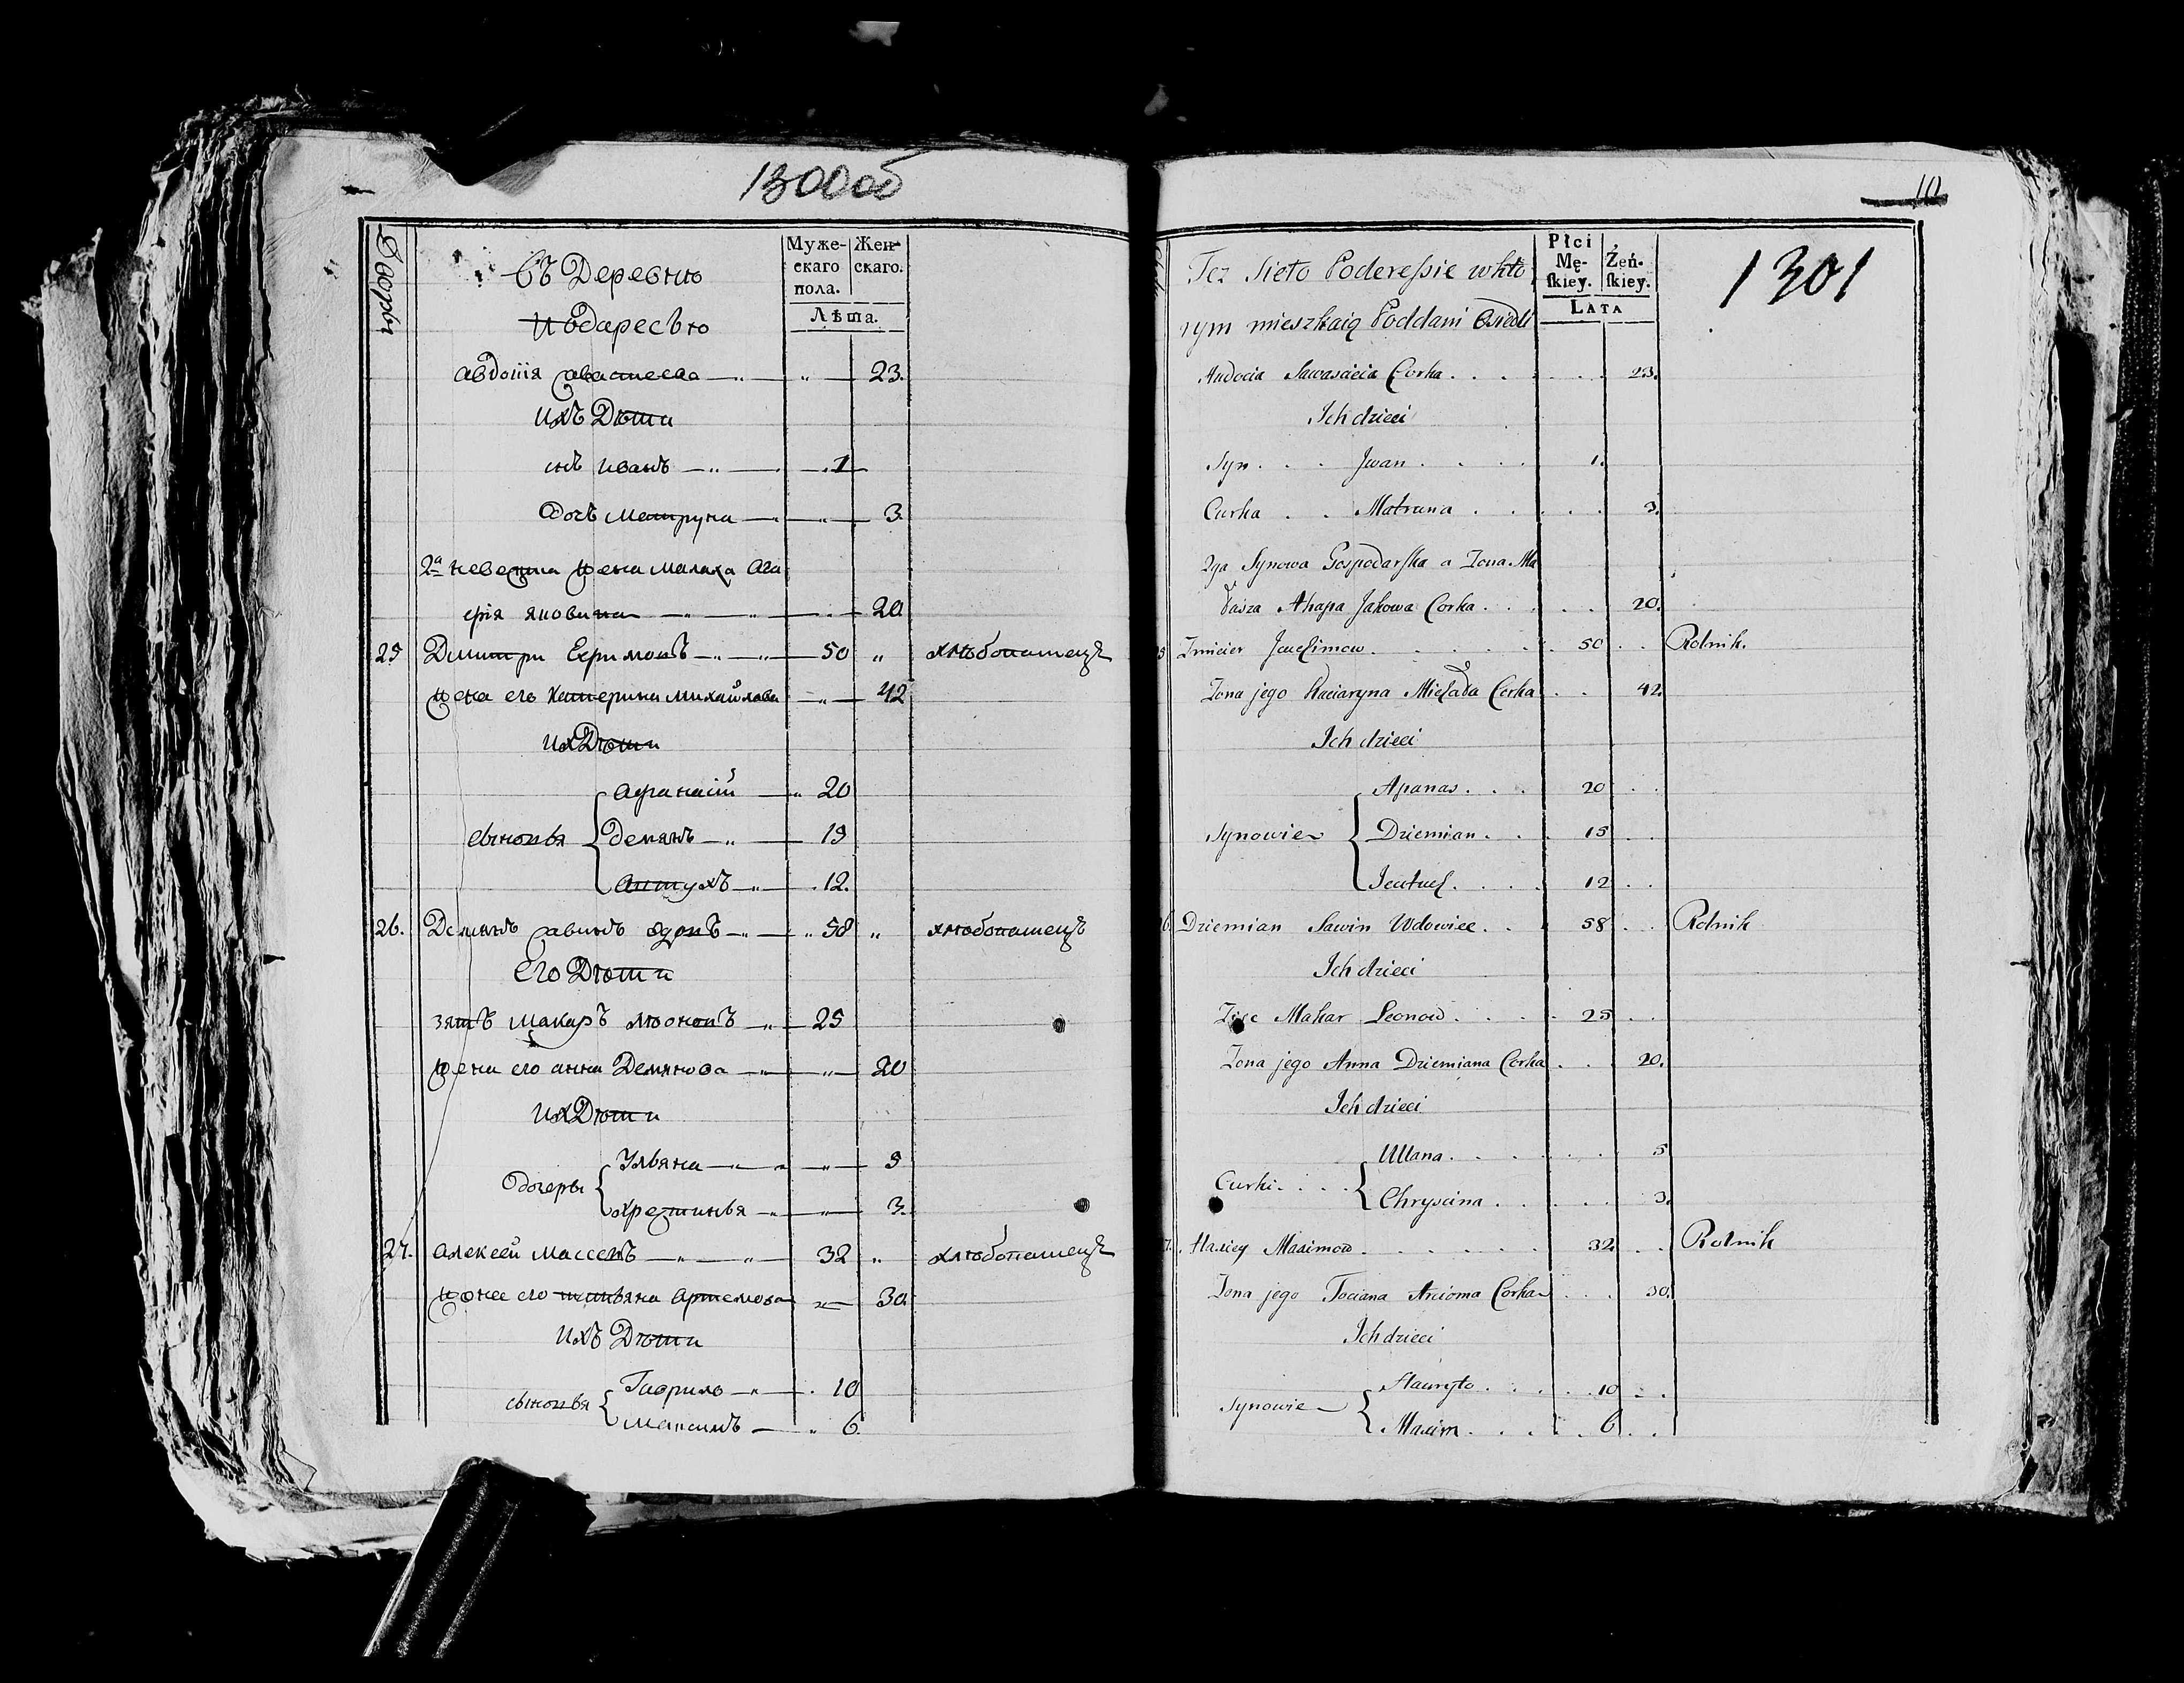 1300об
Дворы
Въ Деревню
Подаресью
Муже-
скаго
пола.
Жен-
скаго.
Лѣта.
Авдотія Савастеева 23.
ихъ Дѣти
снъ иванъ 1
дочь матруна 3
2я невестка жена малаха Ага
фія яковина 20
25 Дмитри Ехримовъ 50 хлѣбопашецъ
жена его Катерина михайлова 42
их Дѣти
сыновья
Афанасій 20
демянъ 15
12.
26. Демянъ савинъ вдовъ 58 хлѣбопашецъ
Его Дѣти
зять макаръ лѣоновъ 25
жена его анна Демянова 20
их Дѣти
дочеры
Ульяна 5
хрестинья 3.
27. Алексей 32 хлѣбопашецъ
его татьяна Артемова 30
ихъ Дѣти
сыновья
Гаврило 10
Максимъ 6
10
1301
Tez Sieło Poderesie w któ
rym mieszkaią Poddani Osiedli
Płci
Mę-
ſkiey.
Żeń-
ſkiey.
LATA
Audocia Sawaścieia Corka 23.
Ich dzieci
Syn Jwan 1.
Curka Matruna 3.
2ga Synowa Gospodarska a Żona Ma
łasza Ahapa Jakowa Corka 20.
Zmicier Jachimow 50 Rolnik.
Żona jego Kaciaryna Michała Corka 42.
Ich dzieci
Synowie
Apanas 20
Dziemian 15
12
Dziemian Sawin Wdowiec 58 Rolnik
Ich dzieci
Zięc Makar Leonow 25
Żona jego Anna Dziemiana Corka 20.
Ich dzieci
Curki
Ullana 5
Chryscina 3.
Maximow 32 Rolnik
Żona jego Taciana Arcioma Corka 30.
Ich dzieci
Synowie
Hauryło 10
Maxim 6